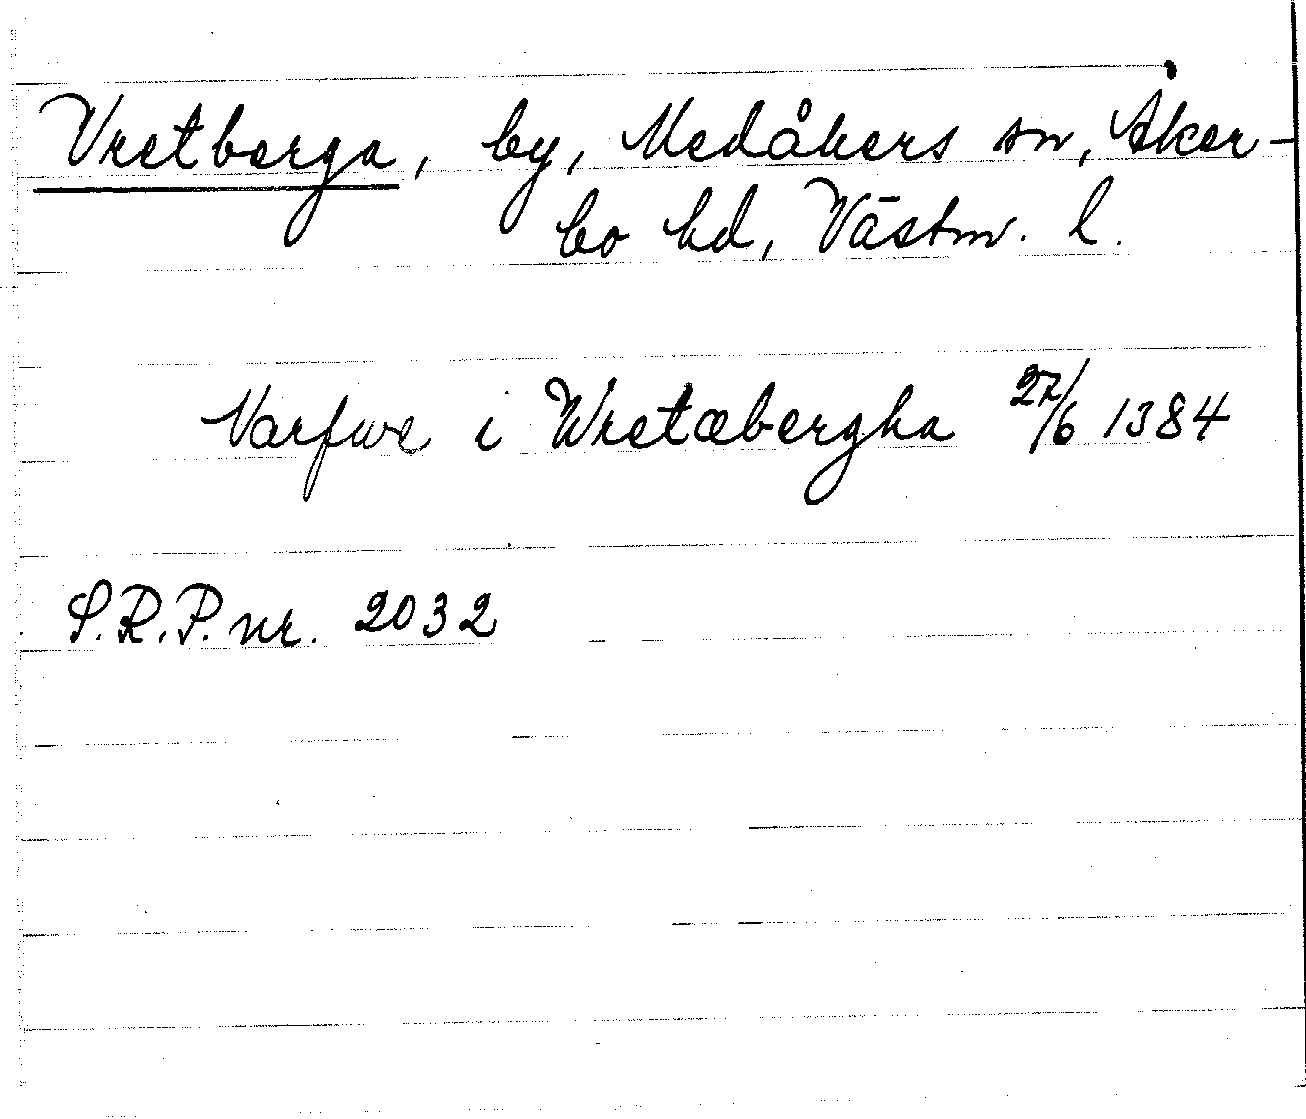 Vretberga, by, Medåkers sn, Åker-
bo hd, Västm. l.
Narfwe i Wretæbergha 27/6 1384
S.R.P. nr. 2032